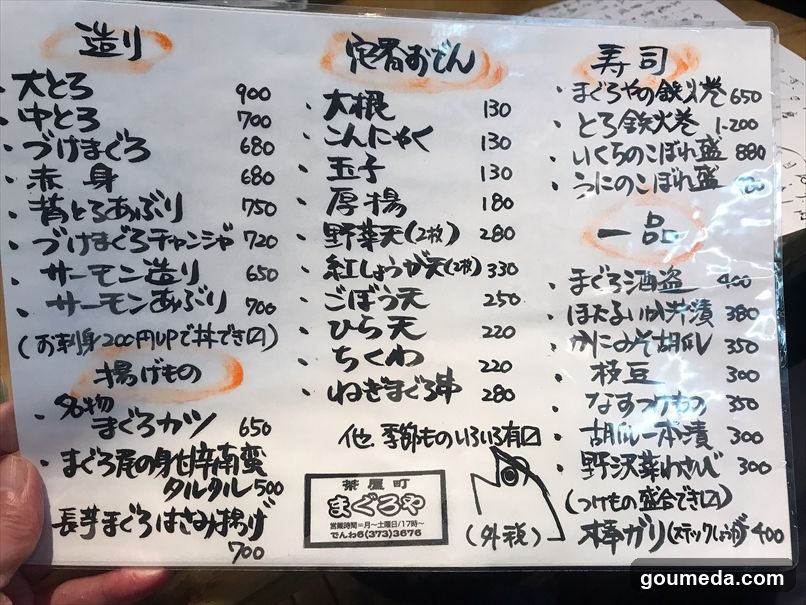 造り
・大とろ 900
・中とろ 700
・づけまぐろ 680
・赤身 680
・昔とろあぶり 750
・づけまぐろチャンジャ 720
・サーモン造り 650
・サーモンあぶり 700
(お刺身200円UPで丼でき〼)
揚げもの
・名物
まぐろカツ 650
・まぐろ尾の身甘辛南蛮
タルタル 500
・長芋まぐろはさみ揚げ
700
定番おでん
・大根 130
・こんにゃく 130
・玉子 130
・厚揚 180
・野菜天(2枚) 280
・紅しょうが天(2枚) 330
・ごぼう天 250
・ひら天 220
・ちくわ 220
・ねぎまぐろ串 280
他季節ものいろいろ有〼
茶屋町
まぐろや
営業時間=月〜土曜日/17時〜
でんわ6(373)3676
(外税)
寿司
・まぐろやの鉄火巻 650
・とろ鉄火巻 1.200
・いくらのこぼれ盛 880
・うにのこぼれ盛
一品
・まぐろ酒盗 400
・ほたるいか沖漬 380
・かにみそ胡瓜 350
・枝豆 300
・なすつけもの 350
・胡瓜一本漬 300
・野沢菜わさび 300
(つけもの盛合でき〼)
・棒ガリ(スティックしょうが) 400
goumeda.com